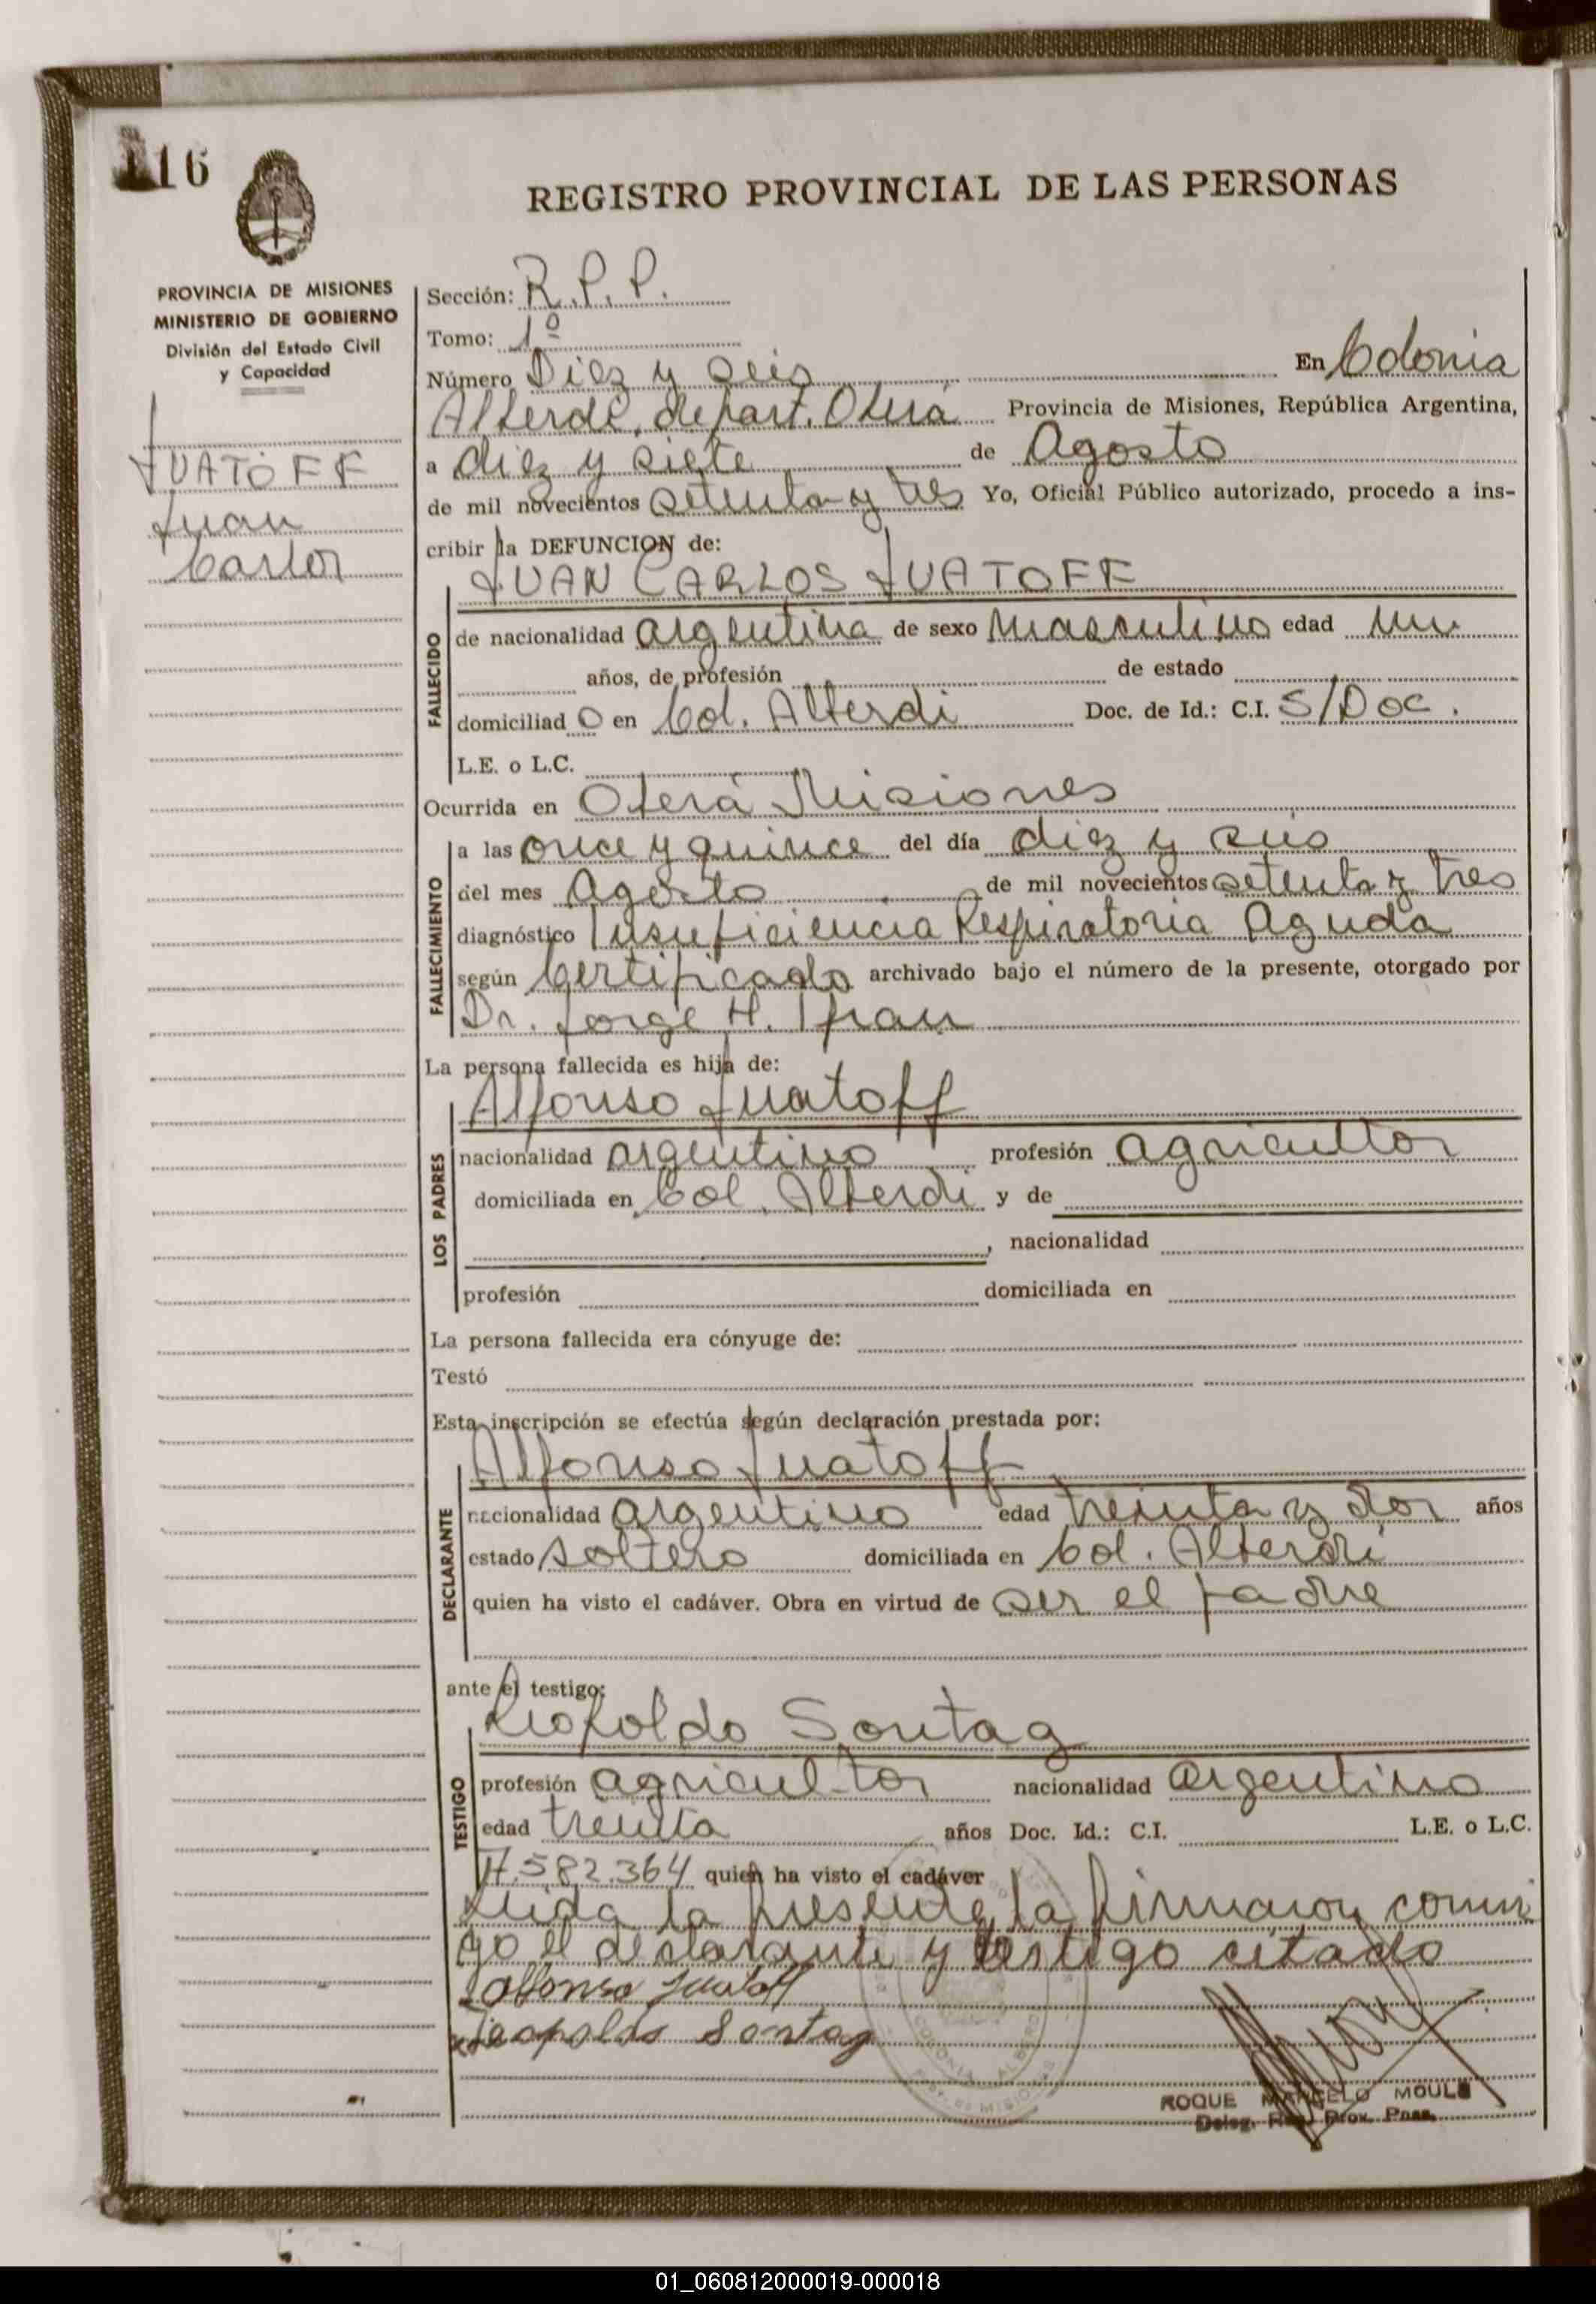 116
REGISTRO PROVINCIAL DE LAS PERSONAS
PROVINCIA DE MISIONES
MINISTERIO DE GOBIERNO
División del Estado Civil
y Capacidad
JUATOFF
Juan
Carlos
Sección: R.P.P.
Tomo: 1º
Número Diez y seis En Colonia
Alberdi, depart. Oberá Provincia de Misiones, República Argentina,
a diez y siete de Agosto
de mil novecientos setenta y tres Yo, Oficial Público autorizado, procedo a ins-
cribir la DEFUNCION de:
JUAN CARLOS JUATOFF
FALLECIDO
de nacionalidad argentina de sexo masculino edad un
años, de profesión de estado
domiciliad o en Col. Alberdi Doc. de Id.: C.I. S/Doc.
L.E. o L.C.
Ocurrida en Oberá Misiones
FALLECIMIENTO
a las once y quince del día diez y seis
del mes Agosto de mil novecientos setenta y tres
diagnóstico Insuficiencia Respiratoria Aguda
según Certificado archivado bajo el número de la presente, otorgado por
Dr. Jorge H. Ifran
La persona fallecida es hija de:
Alfonso Juatoff
LOS PADRES
nacionalidad argentino profesión agricultor
domiciliada en Col. Alberdi y de
, nacionalidad
profesión domiciliada en
La persona fallecida era cónyuge de:
Testó
Esta inscripción se efectúa según declaración prestada por:
Alfonso Juatoff
DECLARANTE
nacionalidad argentino edad treinta y dos años
estado soltero domiciliada en Col. Alberdi
quien ha visto el cadáver. Obra en virtud de ser el padre
ante el testigo:
Leopoldo Sontag
TESTIGO
profesión agricultor nacionalidad argentino
edad treinta años Doc. Id.: C.I. L.E. o L.C.
7.582.364 quien ha visto el cadáver
Leida la presente, la firmaron conmi
go el declarante y testigo citado
Alfonso Juatoff
Leopoldo Sontag
COLONIA ALBERDI
MISIONES
ROQUE MARCELO MOULE
Deleg. Reg. Prov. Pnas.
01_060812000019-000018